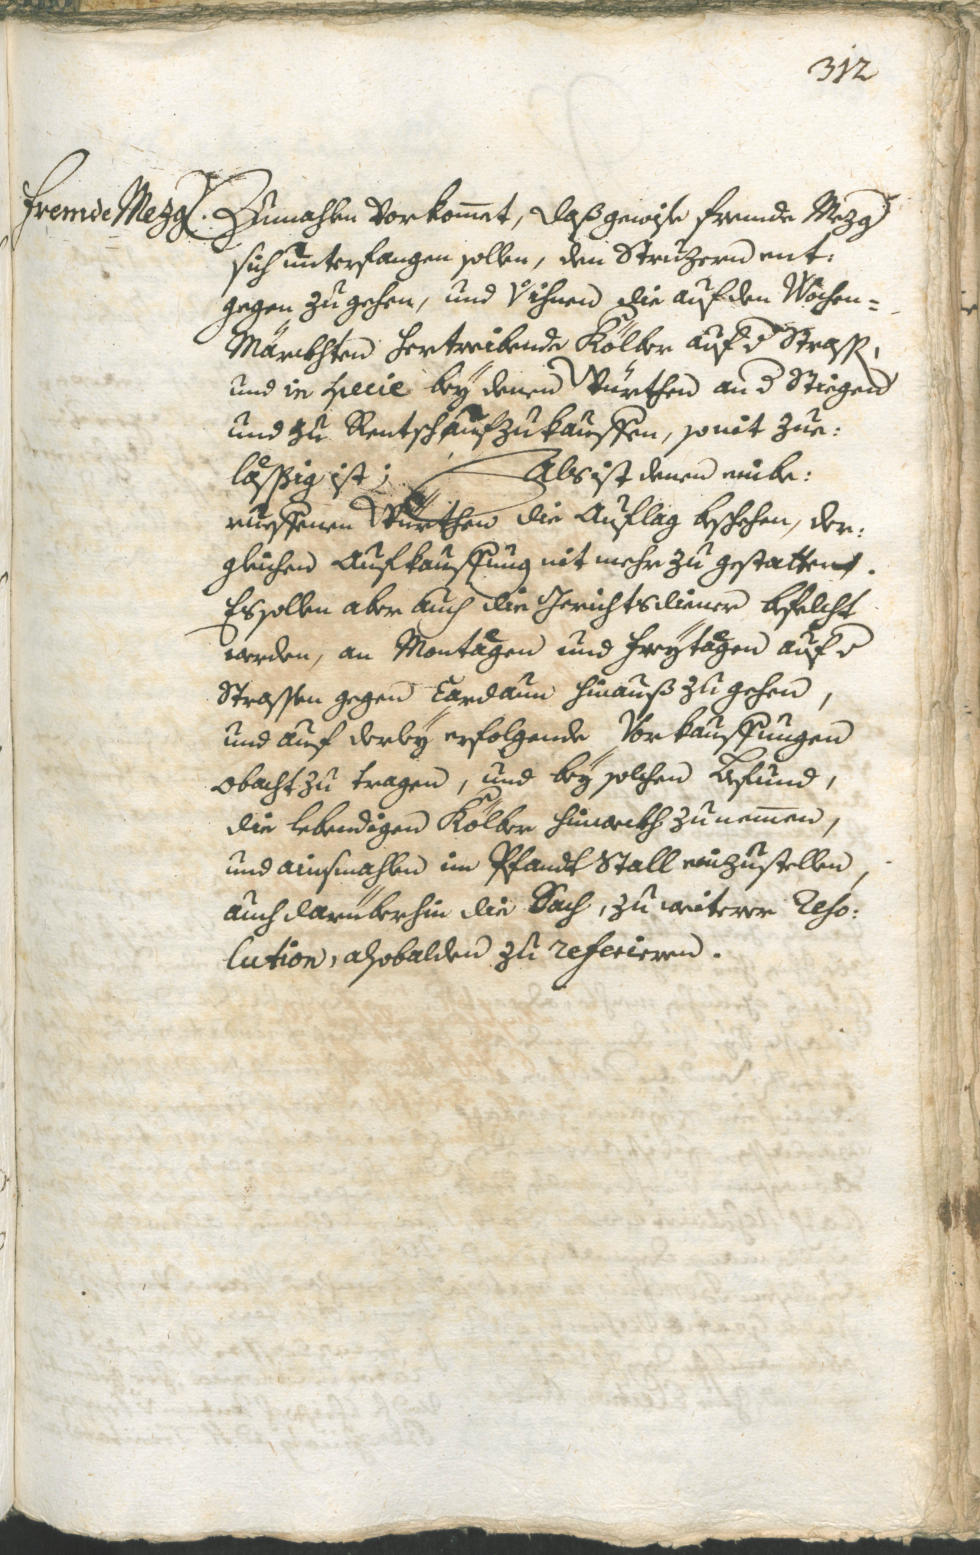 312
fremde Mezg(er). Zumahlen Vorkom̄et, daß gewise fremde Mezg(er)
sich unterfangen sollen, den Struzern ent:
gegen zu gehen, und v(on) ihnen die auf den Wochen=
Märckhten hertreibende Kölber auf d(er) Strass,
und in specie bey denen Würthen an d(er) Stiegen
und zu Rentsch aufzukauffen, so nit zue:
läßsig ist; Als ist denen einbe:
rueffenen Würthen die Auflag beschehen, der:
gleichen Aufkauffung nit mehr zu gestatten.
Es sollen aber auch die Gerichtsdiener befelcht
werden, an Montägen und Freytägen auf d(er)
Strassen gegen Cardaun hinauß zu gehen,
und auf derley erfolgende Vorkauffungen
obacht zu tragen, und bey solchen Befund,
die lebendigen Kölber hinweckh zunem̄en,
und ainsmahlen im Pfandt Stall einzustellen,
auch darüberhin die Sach, zu weiterer Reso:
lution, alsobalden zu referieren.